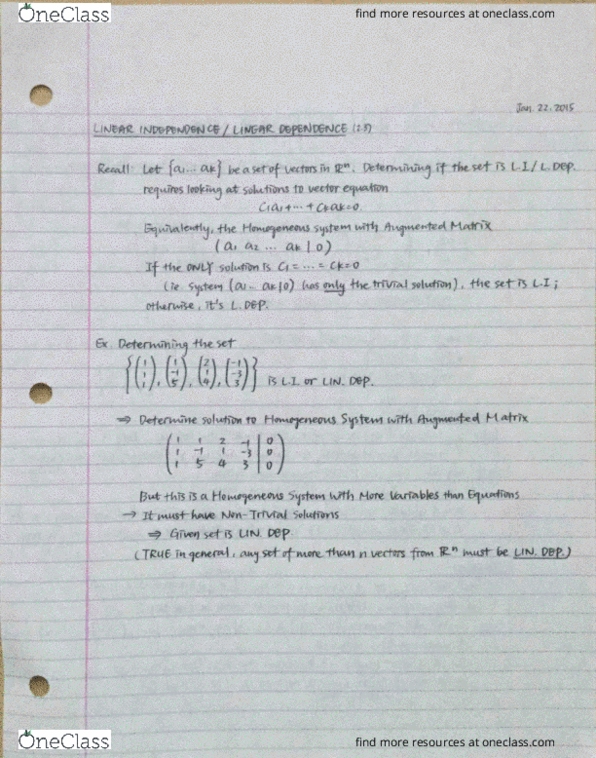 OneClass
find more resources at oneclass.com
Jan. 22. 2015
LINEAR INDEPENDENCE / LINEAR DEPENDENCE (2.3)
Recall: Let {a₁ ... aₖ} be a set of vectors in ℝⁿ. Determining if the set is L.I / L.DEP.
requires looking at solutions to vector equation
C₁a₁ + ... + Cₖaₖ = 0.
Equivalently, the Homogeneous system with Augmented Matrix
(a₁ a₂ ... aₖ | 0)
If the ONLY solution is C₁ = ... = Cₖ = 0
(ie. system (a₁ ... aₖ | 0) has only the trivial solution), the set is L.I ;
otherwise, it's L. DEP.
Ex. Determining the set
{(1 1 1), (1 -1 5), (2 1 4), (-1 -3 3)} is L.I. or LIN. DEP.
⇒ Determine solution to Homogeneous System with Augmented Matrix
1 1 2 -1 | 0
1 -1 1 -3 | 0
1 5 4 3 | 0
But this is a Homogeneous System with More Variables than Equations
→ It must have Non-Trivial Solutions
⇒ Given set is LIN. DEP.
(TRUE in general, any set of more than n vectors from ℝⁿ must be LIN. DEP.)
OneClass
find more resources at oneclass.com